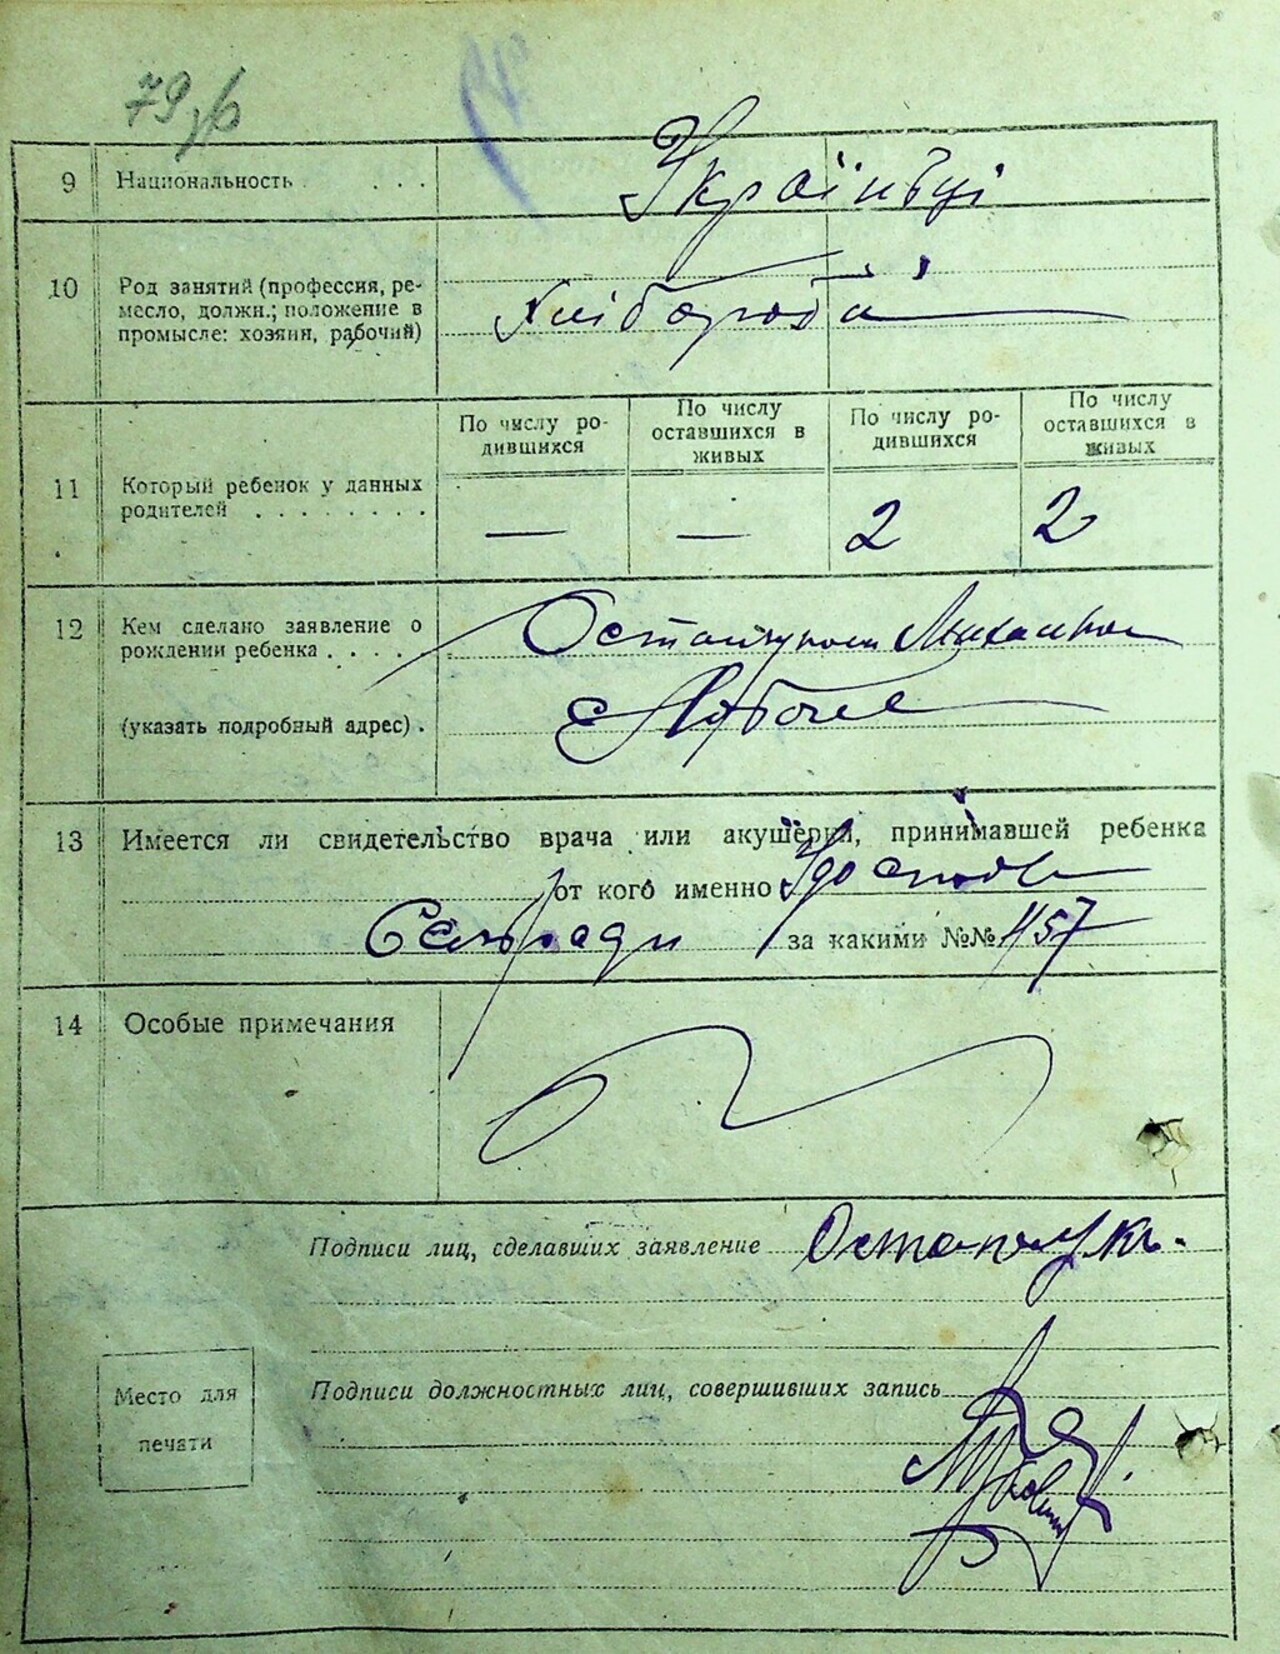 79 зв
9 Национальность . . . . Українці
10 Род занятий (профессия, ре-
месло, должн.; положение в
промысле: хозяин, рабочий)
Хлібороби
По числу ро-
дившихся
По числу
оставшихся в
живых
По числу ро-
дившихся
По числу
оставшихся в
живых
11 Который ребенок у данных
родителей . . . . . . . .
— — 2 2
12 Кем сделано заявление о
рождении ребенка . . . .
(указать подробный адрес) .
13 Имеется ли свидетельство врача или акушерки, принимавшей ребенка
от кого именно
Сельради за какими №№ 457
14 Особые примечания
Подписи лиц, сделавших заявление Остапчукъ.
Подписи должностных лиц, совершивших запись
Место для
печати